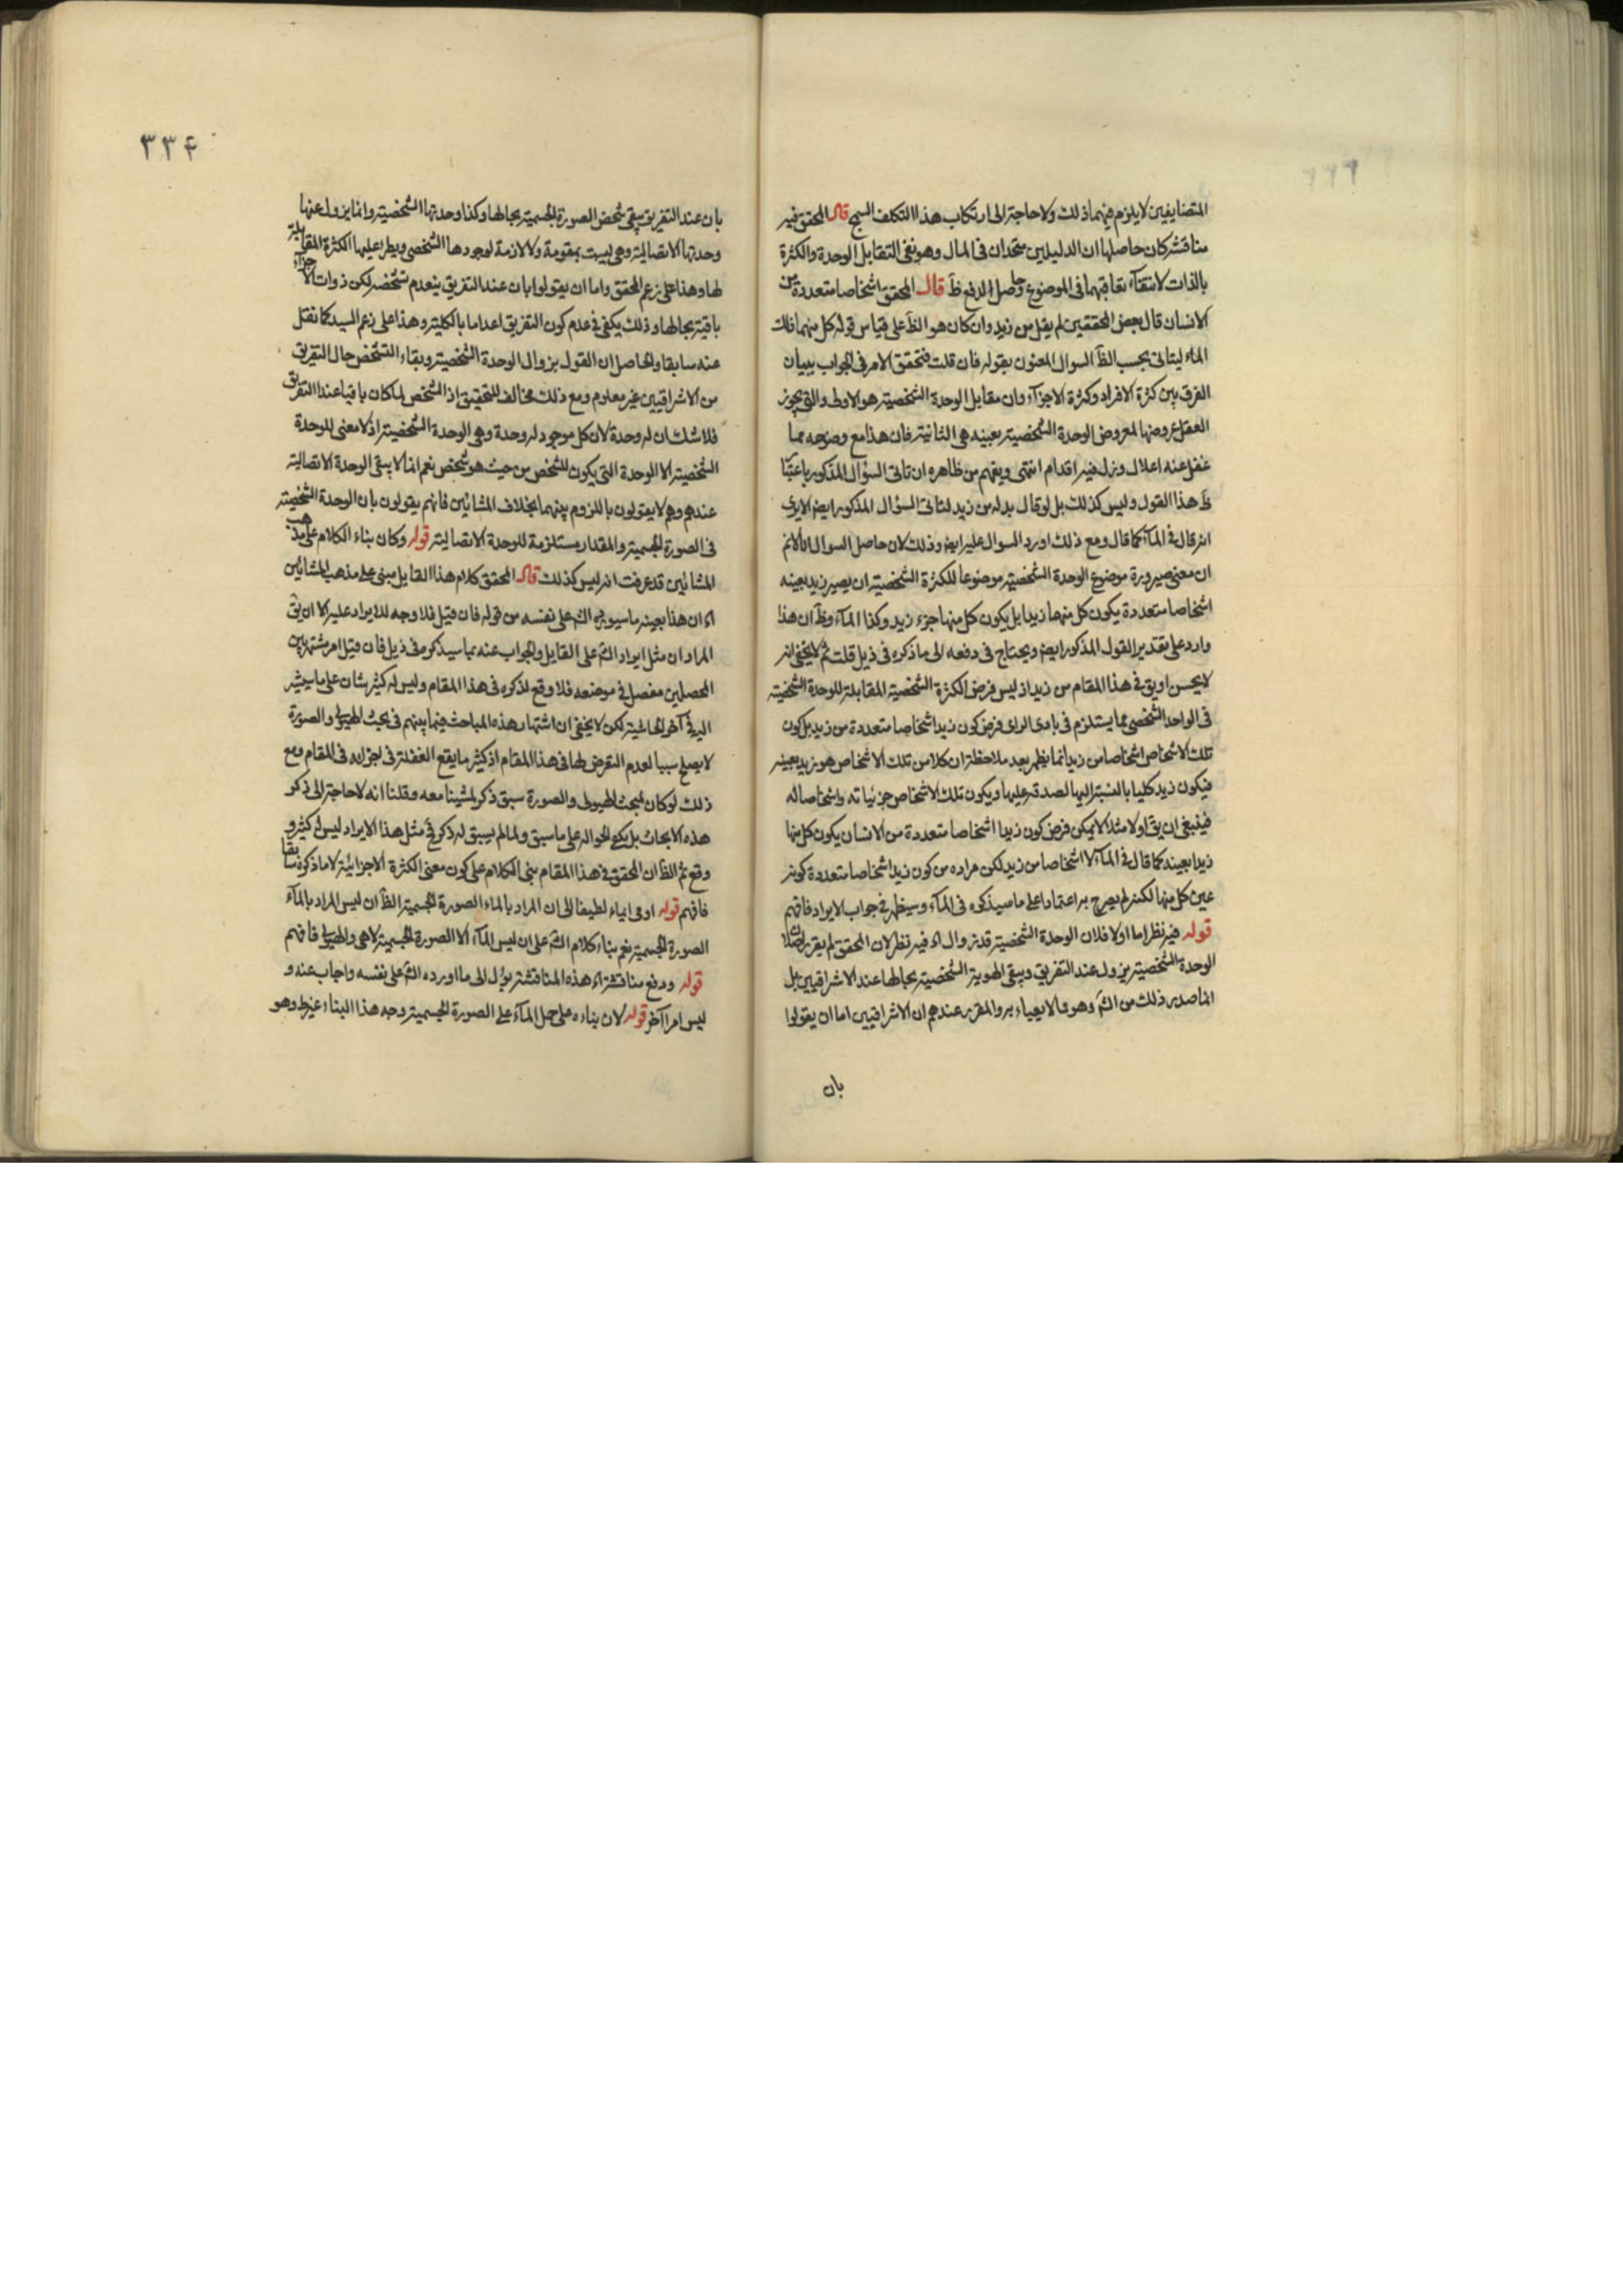 المتضايفين لا يلزم فيهما ذلك ولا حاجة الى ارتكاب هذا التكلف السمج قال المحقق فيه
مناقشة كان حاصلها ان الدليلين متحدان فى المال وهو نفى التقابل الوحدة والكثرة
بالذات لانتفاء تعاقبهما فى الموضوع وحاصل الدفع ظ قال المحقق اشخاصا متعددة من
الانسان قال بعض المحققين لم يقل من زيد وان كان هو الظ على قياس قوله كل منهما ذلك
الماء ليتاتى بحسب الظ السوال المعنون بقوله فان قلت فتحقق الامر فى الجواب ببيان
الفرق بين كثرة الافراد وكثرة الاجزاء وان مقابل الوحدة الشخصية هو الاولى والتى يجوز
العقل عروضها لمعروض الوحدة الشخصية بعينه هى الثانية فان هذا مع وضوحه مما
غفل عنه اعلال وزل فيه اقدام انتهى ويفهم من ظاهره ان تاتى السؤال المذكور باعتبار
ظ هذا القول وليس كذلك بل لو قال بدله من زيد لتاتى السؤال المذكور ايضا الا يرى
انه قال فى الماء كما قال ومع ذلك اورد السوال عليه ايضا وذلك لان حاصل السوال انا لانم
ان معنى صيرورة موضوع الوحدة الشخصية موضوعا للكثرة الشخصية ان يصير زيد بعينه
اشخاصا متعددة يكون كل منهما زيدا بل يكون كل منها جزء زيد وكذا الماء وظ ان هذا
وارد على تقدير القول المذكور ايضا ويحتاج فى دفعه الى ما ذكره فى ذيل قلت ثم لا يخفى انه
لا يحسن او يق فى هذا المقام من زيد اذ ليس فرض الكثرة الشخصية المقابلة للوحدة الشخصية
فى الواحد الشخصى مما يستلزم فى بادى الراى فرض كون زيد اشخاصا متعددة من زيد بل كون
تلك الاشخاص اشخاصا من زيد انما يظهر بعد ملاحظة ان كلا من تلك الاشخاص هو زيد بعينه
فيكون زيد كليا بالنسبة اليها لصدقه عليها ويكون تلك الاشخاص جزئياته واشخاصا له
فينبغى ان يق اولا مثلا لا يمكن فرض كون زيدا اشخاصا متعددة من الانسان يكون كل منها
زيدا بعينه كما قال فى الماء لا اشخاصا من زيد لكن مراده من كون زيد اشخاصا متعددة كونه
عين كل منها لكنه لم يصرح به اعتمادا على ما سيذكره فى الماء وسيظهر فى جواب الايراد فافهم
قوله فيه نظر اما اولا فلان الوحدة الشخصية قد تزول اه فيه نظر لان المحقق لم يقرر اصلا ان
الوحدة الشخصية يزول عند التفريق ويبقى الهوية الشخصية بحالها عند الاشراقيين بل
انما صدر ذلك من الش وهو مما لا يعباء به والمقرر عندهم ان الاشراقيين اما ان يقولوا
بان
٣٣۴
بان عند التفريق يبقى شخص الصورة الجسمية بحالها وكذا وحدتها الشخصية وانما يزول عنها
وحدتها الاتصالية وهى ليست بمقومة ولا لازمة لوجودها الشخصى ويطرء عليها الكثرة المقابلة
لها وهذا على زعم المحقق واما ان يقولوا بان عند التفريق ينعدم تشخصه لكن ذوات الاجزاء
باقية بحالها وذلك يكفى فى عدم كون التفريق اعداما بالكلية وهذا على زعم السيد كما نقل
عنه سابقا والحاصل ان القول بزوال الوحدة الشخصية وبقاء التشخص حال التفريق
من الاشراقيين غير معلوم ومع ذلك مخالف للتحقيق اذ الشخص لما كان باقيا عند التفريق
فلا شك ان له وحدة لان كل موجود له وحدة وهى الوحدة الشخصية اذ لا معنى للوحدة
الشخصية الا الوحدة التى يكون للشخص من حيث هو شخص نعم انما لا يبقى الوحدة الاتصالية
عندهم وهم لا يقولون باللزوم بينهما بخلاف المشائين فانهم يقولون بان الوحدة الشخصية
فى الصورة الجسمية والمقدار مستلزمة للوحدة الاتصالية قوله وكان بناء الكلام على مذهب
المشائين قد عرفت انه ليس كذلك قال المحقق كلام هذا القايل مبنى على مذهب المشائين
اه ان هذا بعينه ما سيورده الش على نفسه من قوله فان قيل فلا وجه للايراد عليه الا ان يق
المراد ان مثل ايراد الش على القايل والجواب عنه بما سيذكره فى ذيل فان قيل امر مشتهر بين
المحصلين مفصل فى موضعه فلا وقع لذكره فى هذا المقام وليس له كثير شان على ما يشير
اليه فى آخر الحاشية لكن لا يخفى ان اشتهار هذه المباحث فيما بينهم فى بحث الهيولى والصورة
لا يصلح سببا لعدم التعرض لها فى هذا المقام اذ كثير ما يقع الغفلة فى اجزائه فى المقام ومع
ذلك لو كان لمبحث الهيولى والصورة سبق ذكر لمشينا معه وقلنا انه لا حاجة الى ذكر
هذه الابحاث بل يكفى الحوالة على ما سبق ولما لم يسبق له ذكر ففى مثل هذا الايراد ليس له كثير و
وقع ثم الظ ان المحقق فى هذا المقام بنى الكلام على كون معنى الكثرة الاجزائية لا ما ذكره سابقا
فافهم قوله اومى ايماء لطيفا الى ان المراد بالماء الصورة الجسمية الظ ان ليس المراد بالماء
الصورة الجسمية نعم بناء كلام الش على ان ليس الماء الا الصورة الجسمية لا هى والهيولى فافهم
قوله ودفع مناقشة اه هذه المناقشة يؤل الى ما اورده الش على نفسه واجاب عنه و
ليس امرا آخر قوله لان بناءه على حمل الماء على الصورة الجسمية وجه هذا البناء غير ظ وهو